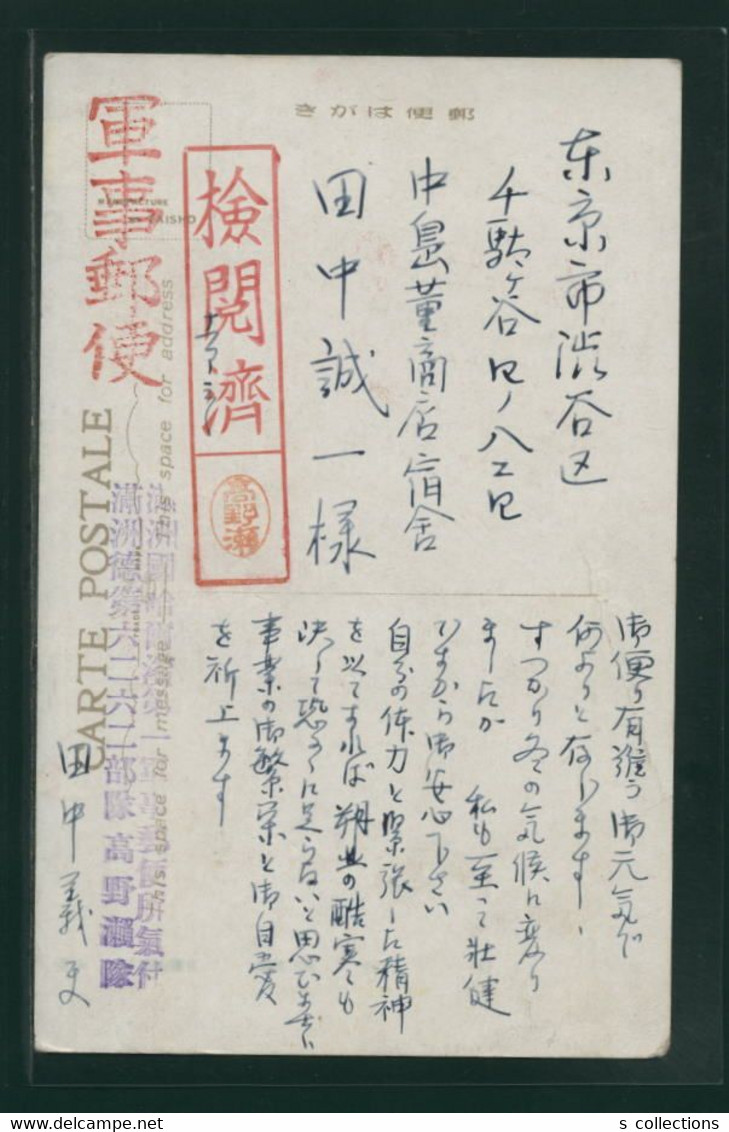 郵便はがき
東京市渋谷区
千駄ヶ谷四ノ八二四
中島董商店宿舎
田中誠一様
検閲濟
高野瀬
軍事郵便
MANUFACTURE
TAISHO
CARTE POSTALE
This space for address
This space for message
軍事郵便所氣付
滿洲德第六二六二部隊高野瀬隊
田中義
御便り有難う御元気で
何よりと存じます、
すつかり冬の気候に変り
ましたが 私も至って壮健
ですから御安心下さい
自分の体力と緊張した精神
を以てすれば朔北の酷寒も
決して恐るゝに足らないと思ひます
事業の御繁栄と御自愛
を祈上ます
s collections